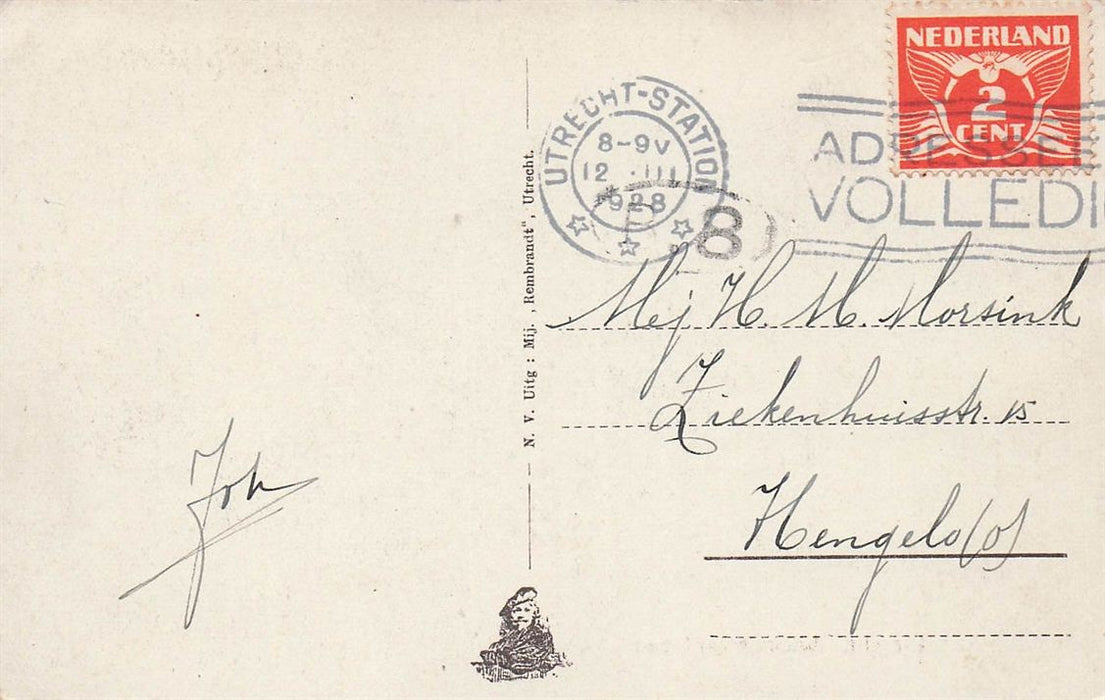 NEDERLAND
2
CENT
UTRECHT-STATION
8-9V
12 .III
1928
ADRESSEE
VOLLEDI
8
Mej H. M. Morsink
Ziekenhuisstr. 15
Hengelo (O)
Joh
N. V. Uitg : Mij. „Rembrandt", Utrecht.